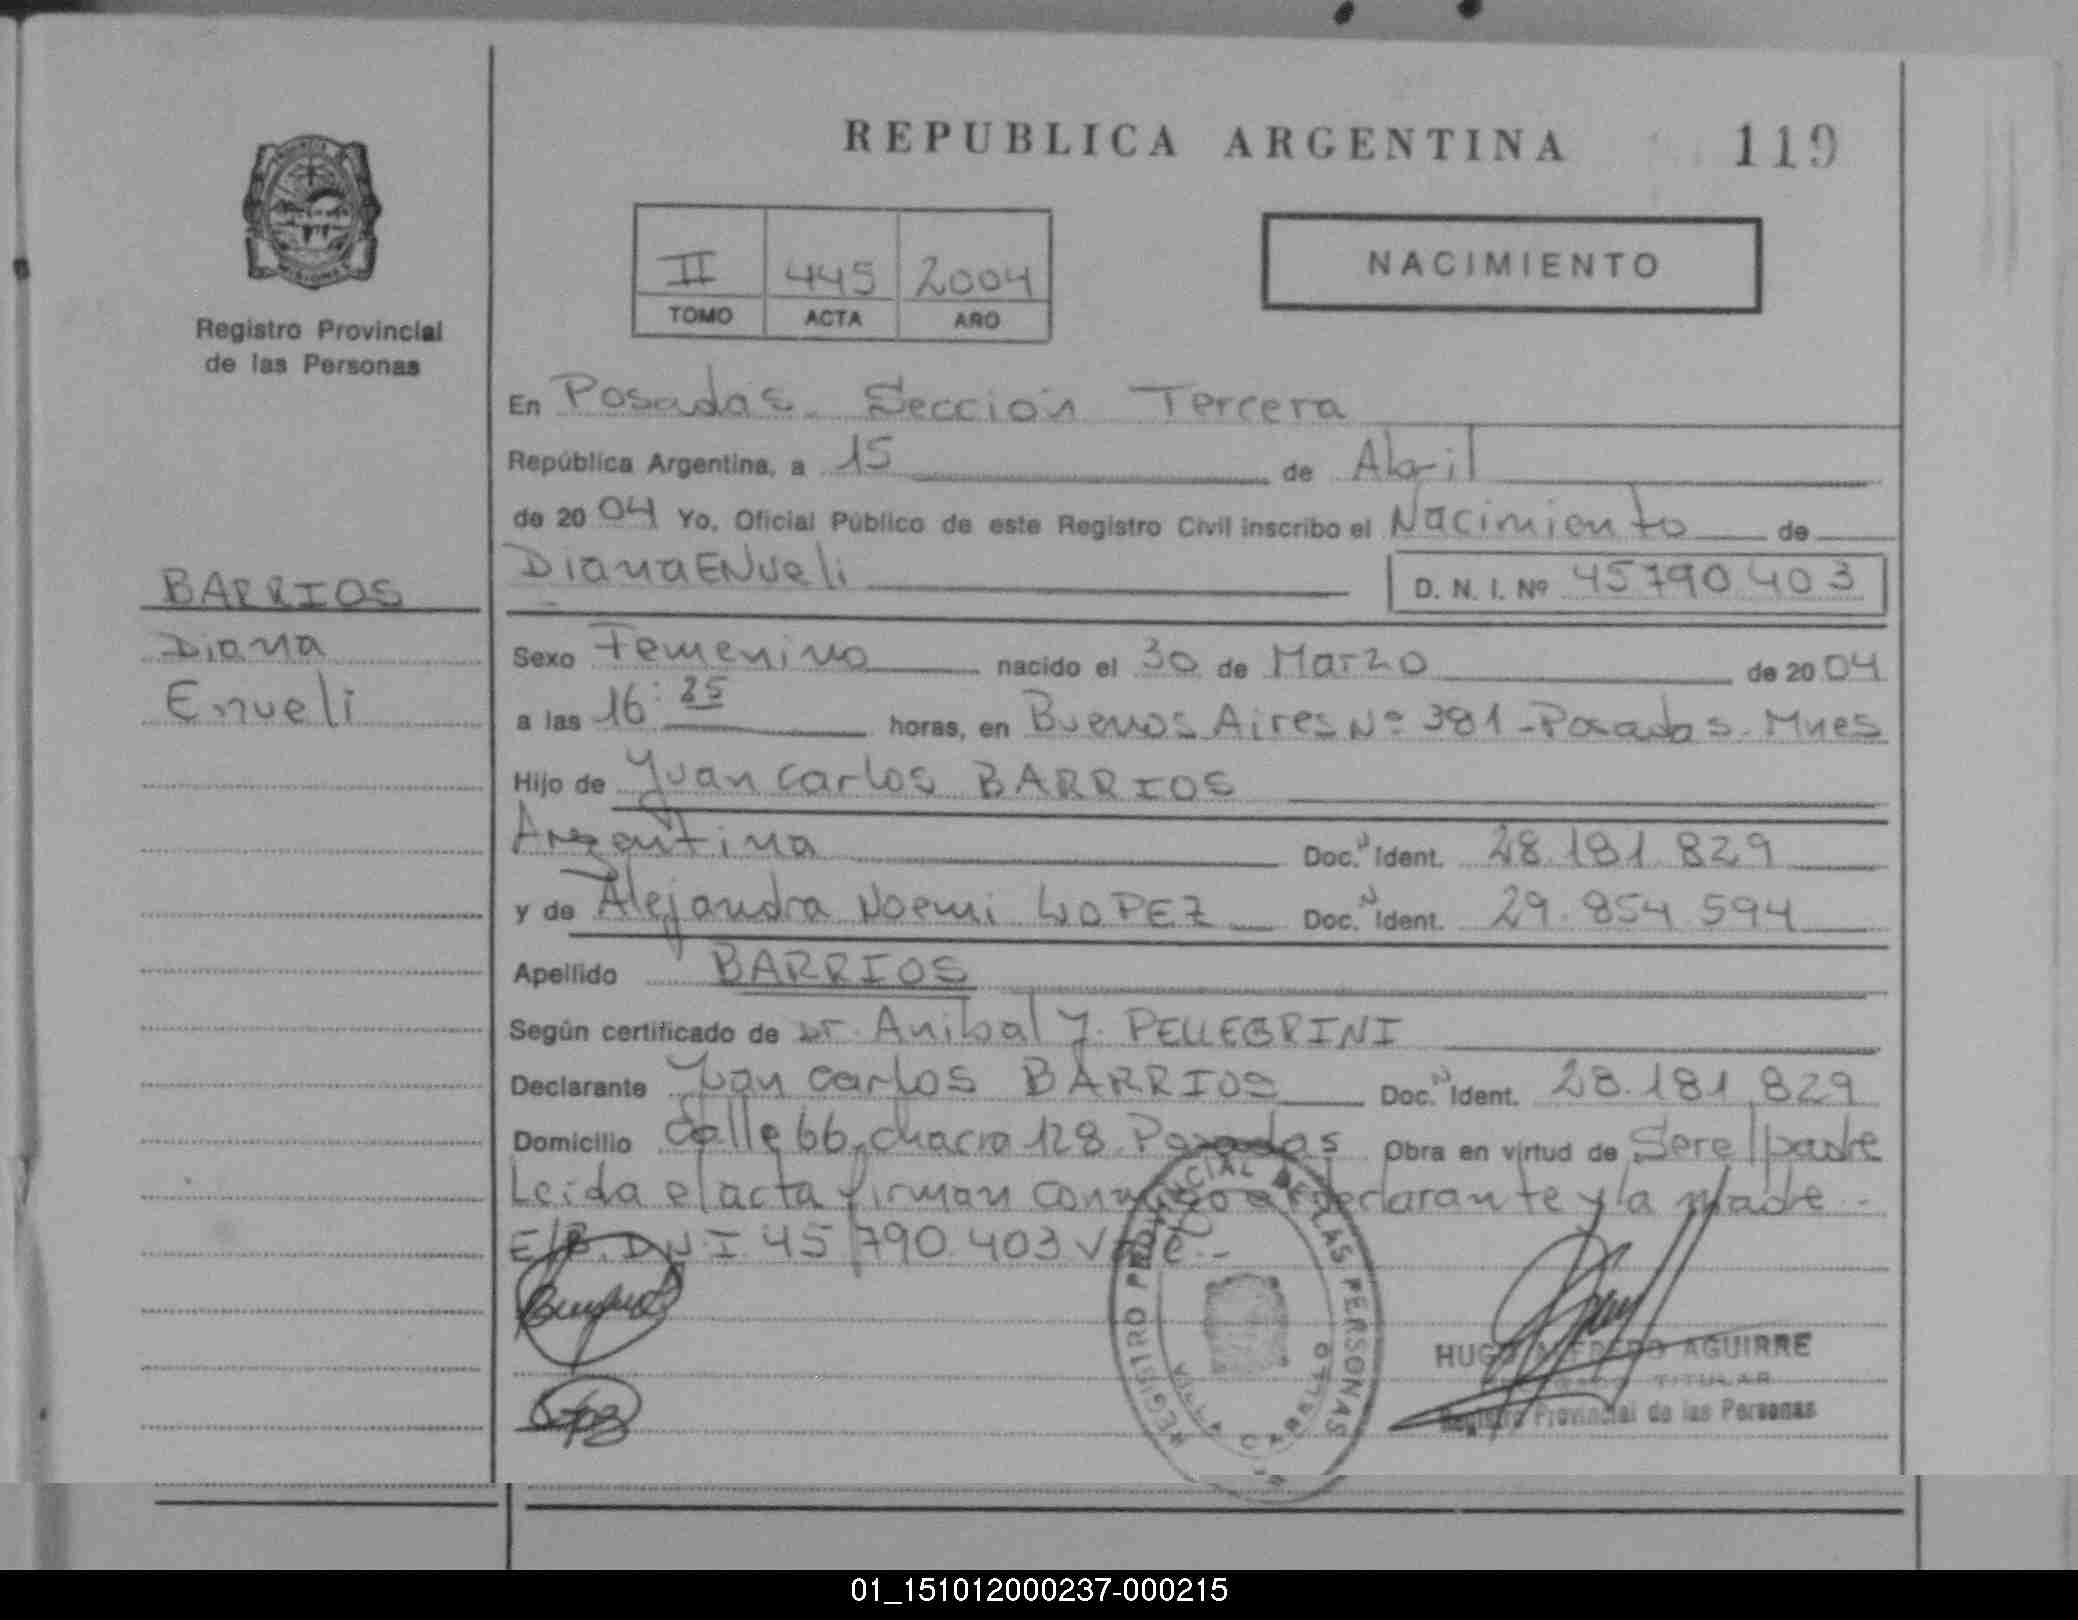 REPUBLICA ARGENTINA
119
II 445 2004
TOMO ACTA AÑO
NACIMIENTO
Registro Provincial
de las Personas
En Posadas. Sección Tercera
República Argentina, a 15 de Abril
de 2004 Yo, Oficial Público de este Registro Civil inscribo el Nacimiento de
Diana ENveli
D. N. I. Nº 45790403
BARRIOS
Diana
Enveli
Sexo Femenino nacido el 30 de Marzo de 2004
a las 16:25 horas, en Buenos Aires Nº 381 - Posadas. Mnes
Hijo de Juan Carlos BARRIOS
Argentina Doc. N Ident. 28.181.829
y de Alejandra Noemi LOPEZ Doc. N Ident. 29.854.594
Apellido BARRIOS
Según certificado de Dr. Anibal J. PELLEGRINI
Declarante Juan Carlos BARRIOS Doc. N Ident. 28.181.829
Domicilio Calle 66, chacra 128 Posadas Obra en virtud de Ser el padre
Leida el acta firman conmigo el declarante y la madre.-
E/R. D.N.I. 45.790.403 Vale.-
REGISTRO PROVINCIAL DE LAS PERSONAS
VILLA CABELLO
HUGO ALFREDO AGUIRRE
TITULAR
Registro Provincial de las Personas
01_151012000237-000215